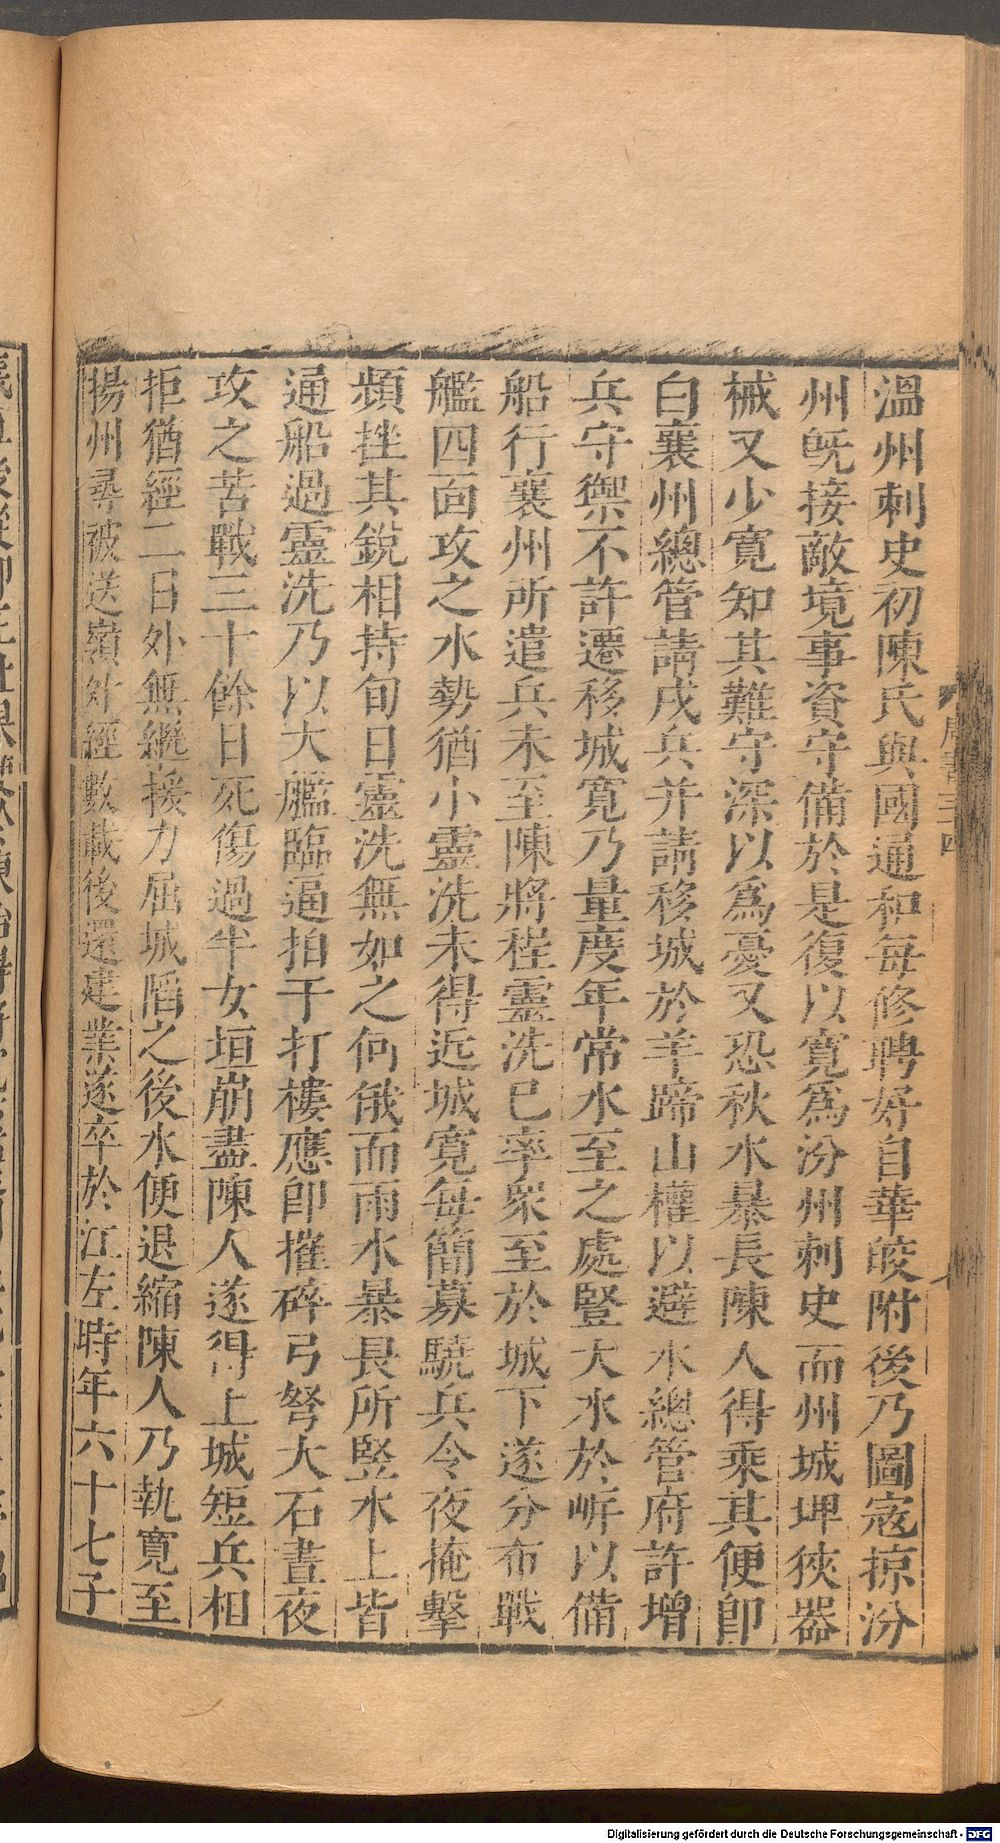 溫州刺史初陳氏與國通和每修聘好自華皎附後乃圖寇掠汾
州旣接敵境事資守備於是復以寬爲汾州刺史而州城埤狹器
械又少寬知其難守深以爲憂又恐秋水暴長陳人得乘其便卽
白襄州總管請戍兵并請移城於羊蹄山權以避水總管府許增
兵守禦不許遷移城寬乃量度年常水至之處豎大水於岍以備
船行襄州所遣兵未至陳將程靈洗已率衆至於城下遂分布戰
艦四面攻之水勢猶小靈洗未得近城寬每簡募驍兵令夜掩擊
頻挫其銳相持旬日靈洗無如之何俄而雨水暴長所竪水上皆
通船過靈洗乃以大艦臨逼拍干打樓應卽摧碎弓弩大石晝夜
攻之苦戰三十餘日死傷過半女垣崩盡陳人遂得上城短兵相
拒猶經二日外無繼援力屈城陷之後水便退縮陳人乃執寬至
揚州尋被送嶺外經數載後還建業遂卒於江左時年六十七子
Digitalisierung gefördert durch die Deutsche Forschungsgemeinschaft - DFG